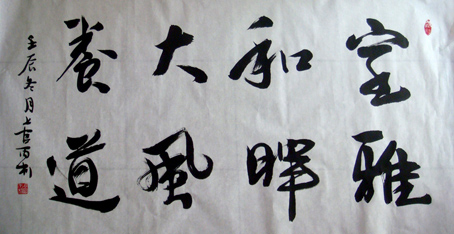 室雅
和暉
大風
養道
壬辰冬月上